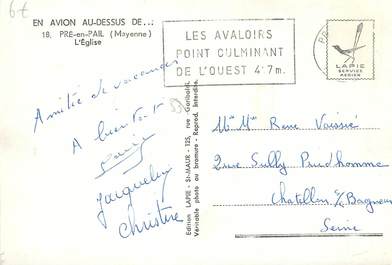 6€
EN AVION AU-DESSUS DE...
18. PRÉ-en-PAIL (Mayenne)
L'Église
LES AVALOIRS
POINT CULMINANT
DE L'OUEST 417m.
LAPIE
SERVICE
AERIEN
Amitiés de vacances
A bientôt
Jacqueline
Christine
Edition LAPIE - St-MAUR - 125, rue Garibaldi.
Véritable photo au bromure - Reprod. interdite.
Mr Mme René Voissié
2 rue Sully Prudhomme
Chatillon s/Bagneux
Seine